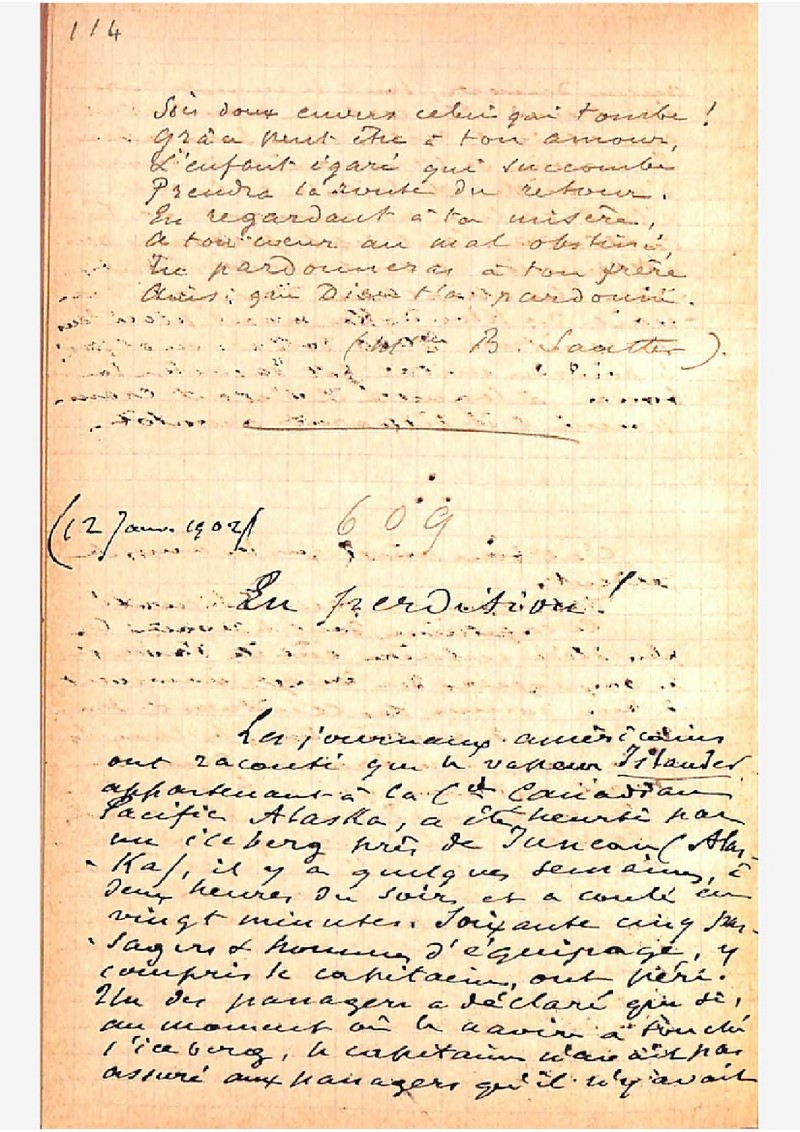 114
Sois doux envers celui qui tombe !
Grâce peut être à ton amour,
L'enfant égaré qui succombe
Prendra la route du retour.
En regardant à ta misère,
A ton cœur au mal obstiné,
Tu pardonneras à ton frère
Ainsi que Dieu t'a pardonné.
(Mme B. Sautter).
(12 Janv. 1902)
609
En perdition !
Les journaux américains
ont raconté que le vapeur Islander
appartenant à la Cie Canadian
Pacific Alaska, a été heurté par
un iceberg près de Juneau (Alas-
Ka), il y a quelques semaines, à
deux heures du soir et a coulé en
vingt minutes. Soixante cinq pas-
sagers & hommes d'équipage, y
compris le capitaine, ont péri.
Un des passagers a déclaré que si,
au moment où le navire a touché
l'iceberg, le capitaine n'avait pas
assuré aux passagers qu'il n'y avait